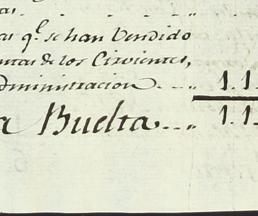 tas
as q.e se han Vendido
ntas de los Cirvientes,
dministracion. 1.1
a Buelta... 1.1.